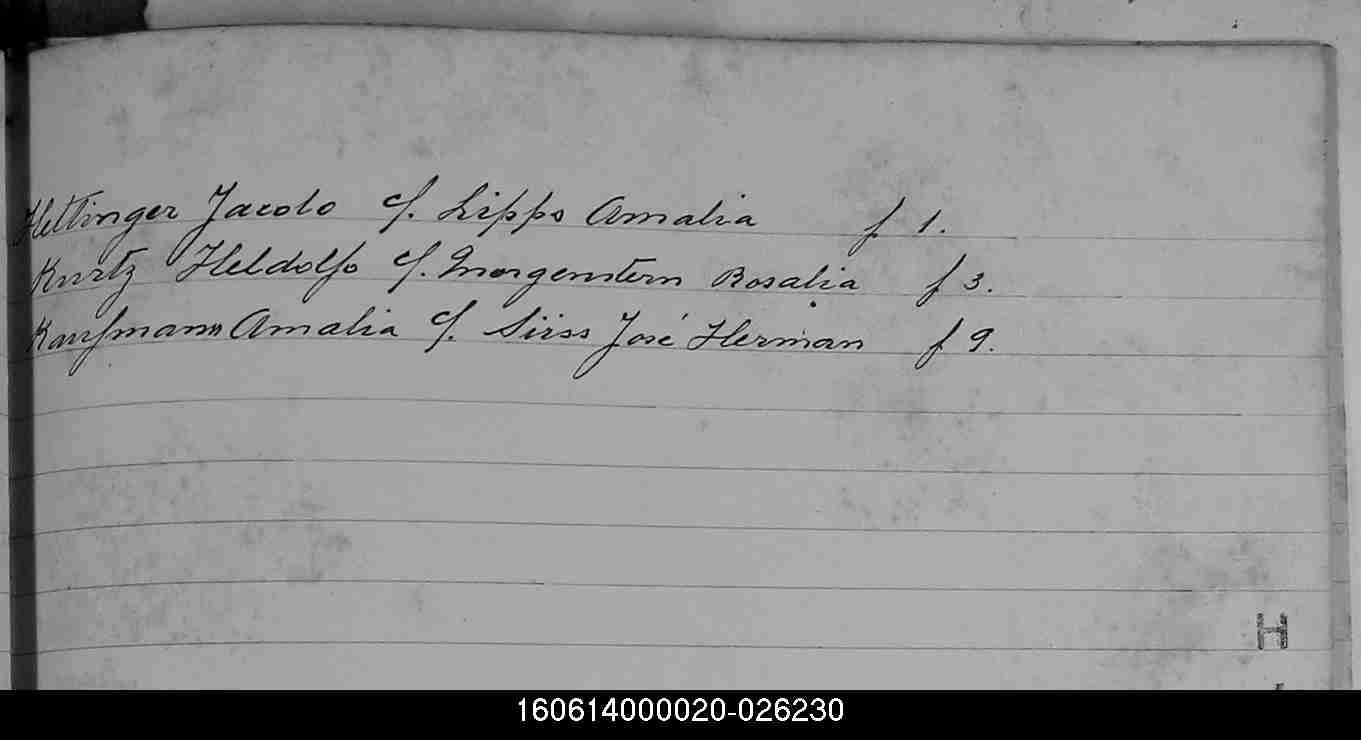 Hettinger Jacobo c/. Lippo Amalia f 1.
Kurtz Heldolfo c/. Morgenstern Rosalia f 3.
Kaufmann Amalia c/. Süss José Herman f 9.
H
160614000020-026230